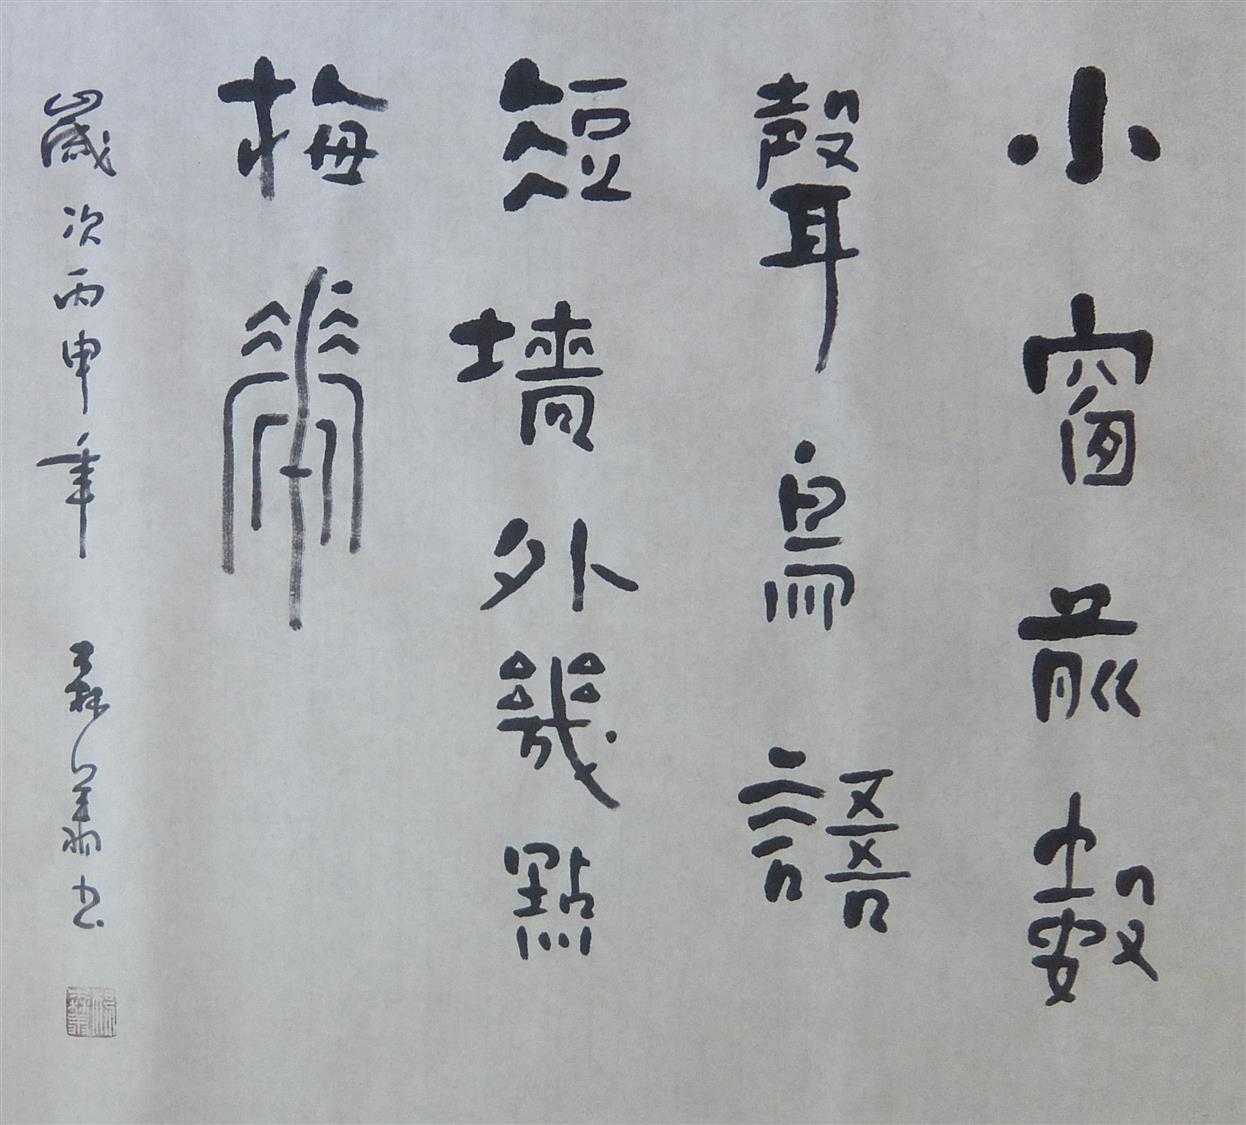 小窗前數
聲鳥語
短墙外幾點
梅花
歲次丙申年 書